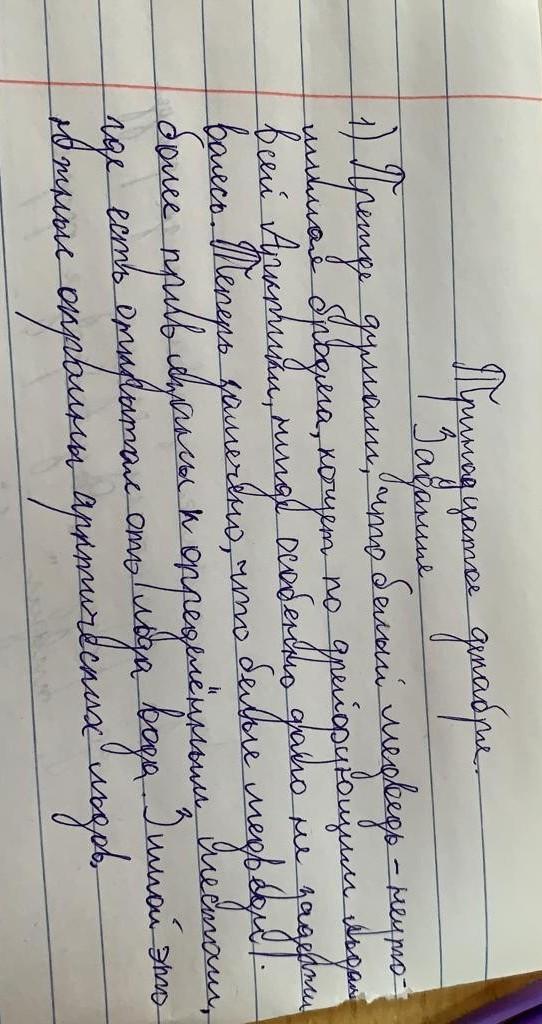 Тринадцатое декабря.
Задания
1) Прежде думали, что белый медведь - неуто-
мимая бродяга, кочует по дрейфующим льдам
всей Арктики, нигде особенно долго не задержи
ваясь. Теперь замечено, что белые медведи
более привязаны к определённым местам,
где есть открытая ото льда вода. Зимой это
южные окраины арктических льдов,